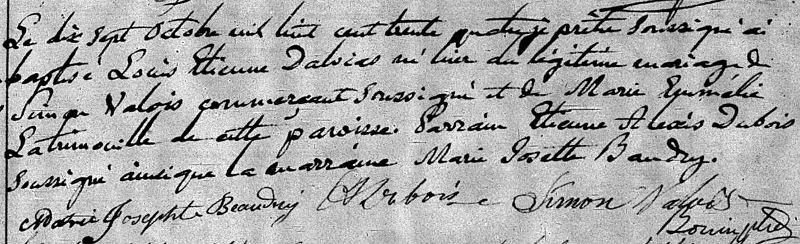 Le dix sept Octobre mil huit cent trente quatre, je prêtre soussigné ai
baptisé Louis Etienne né hier du légitime mariage de
Simon Valois commerçant soussigné et de Marie Emmélie
Latrimouille de cette paroisse. Parrain Etienne Alexis Dubois
soussigné ainsique la marraine Marie Josette Baudry.
Marie Josephte Beaudry Dubois Simon Valois